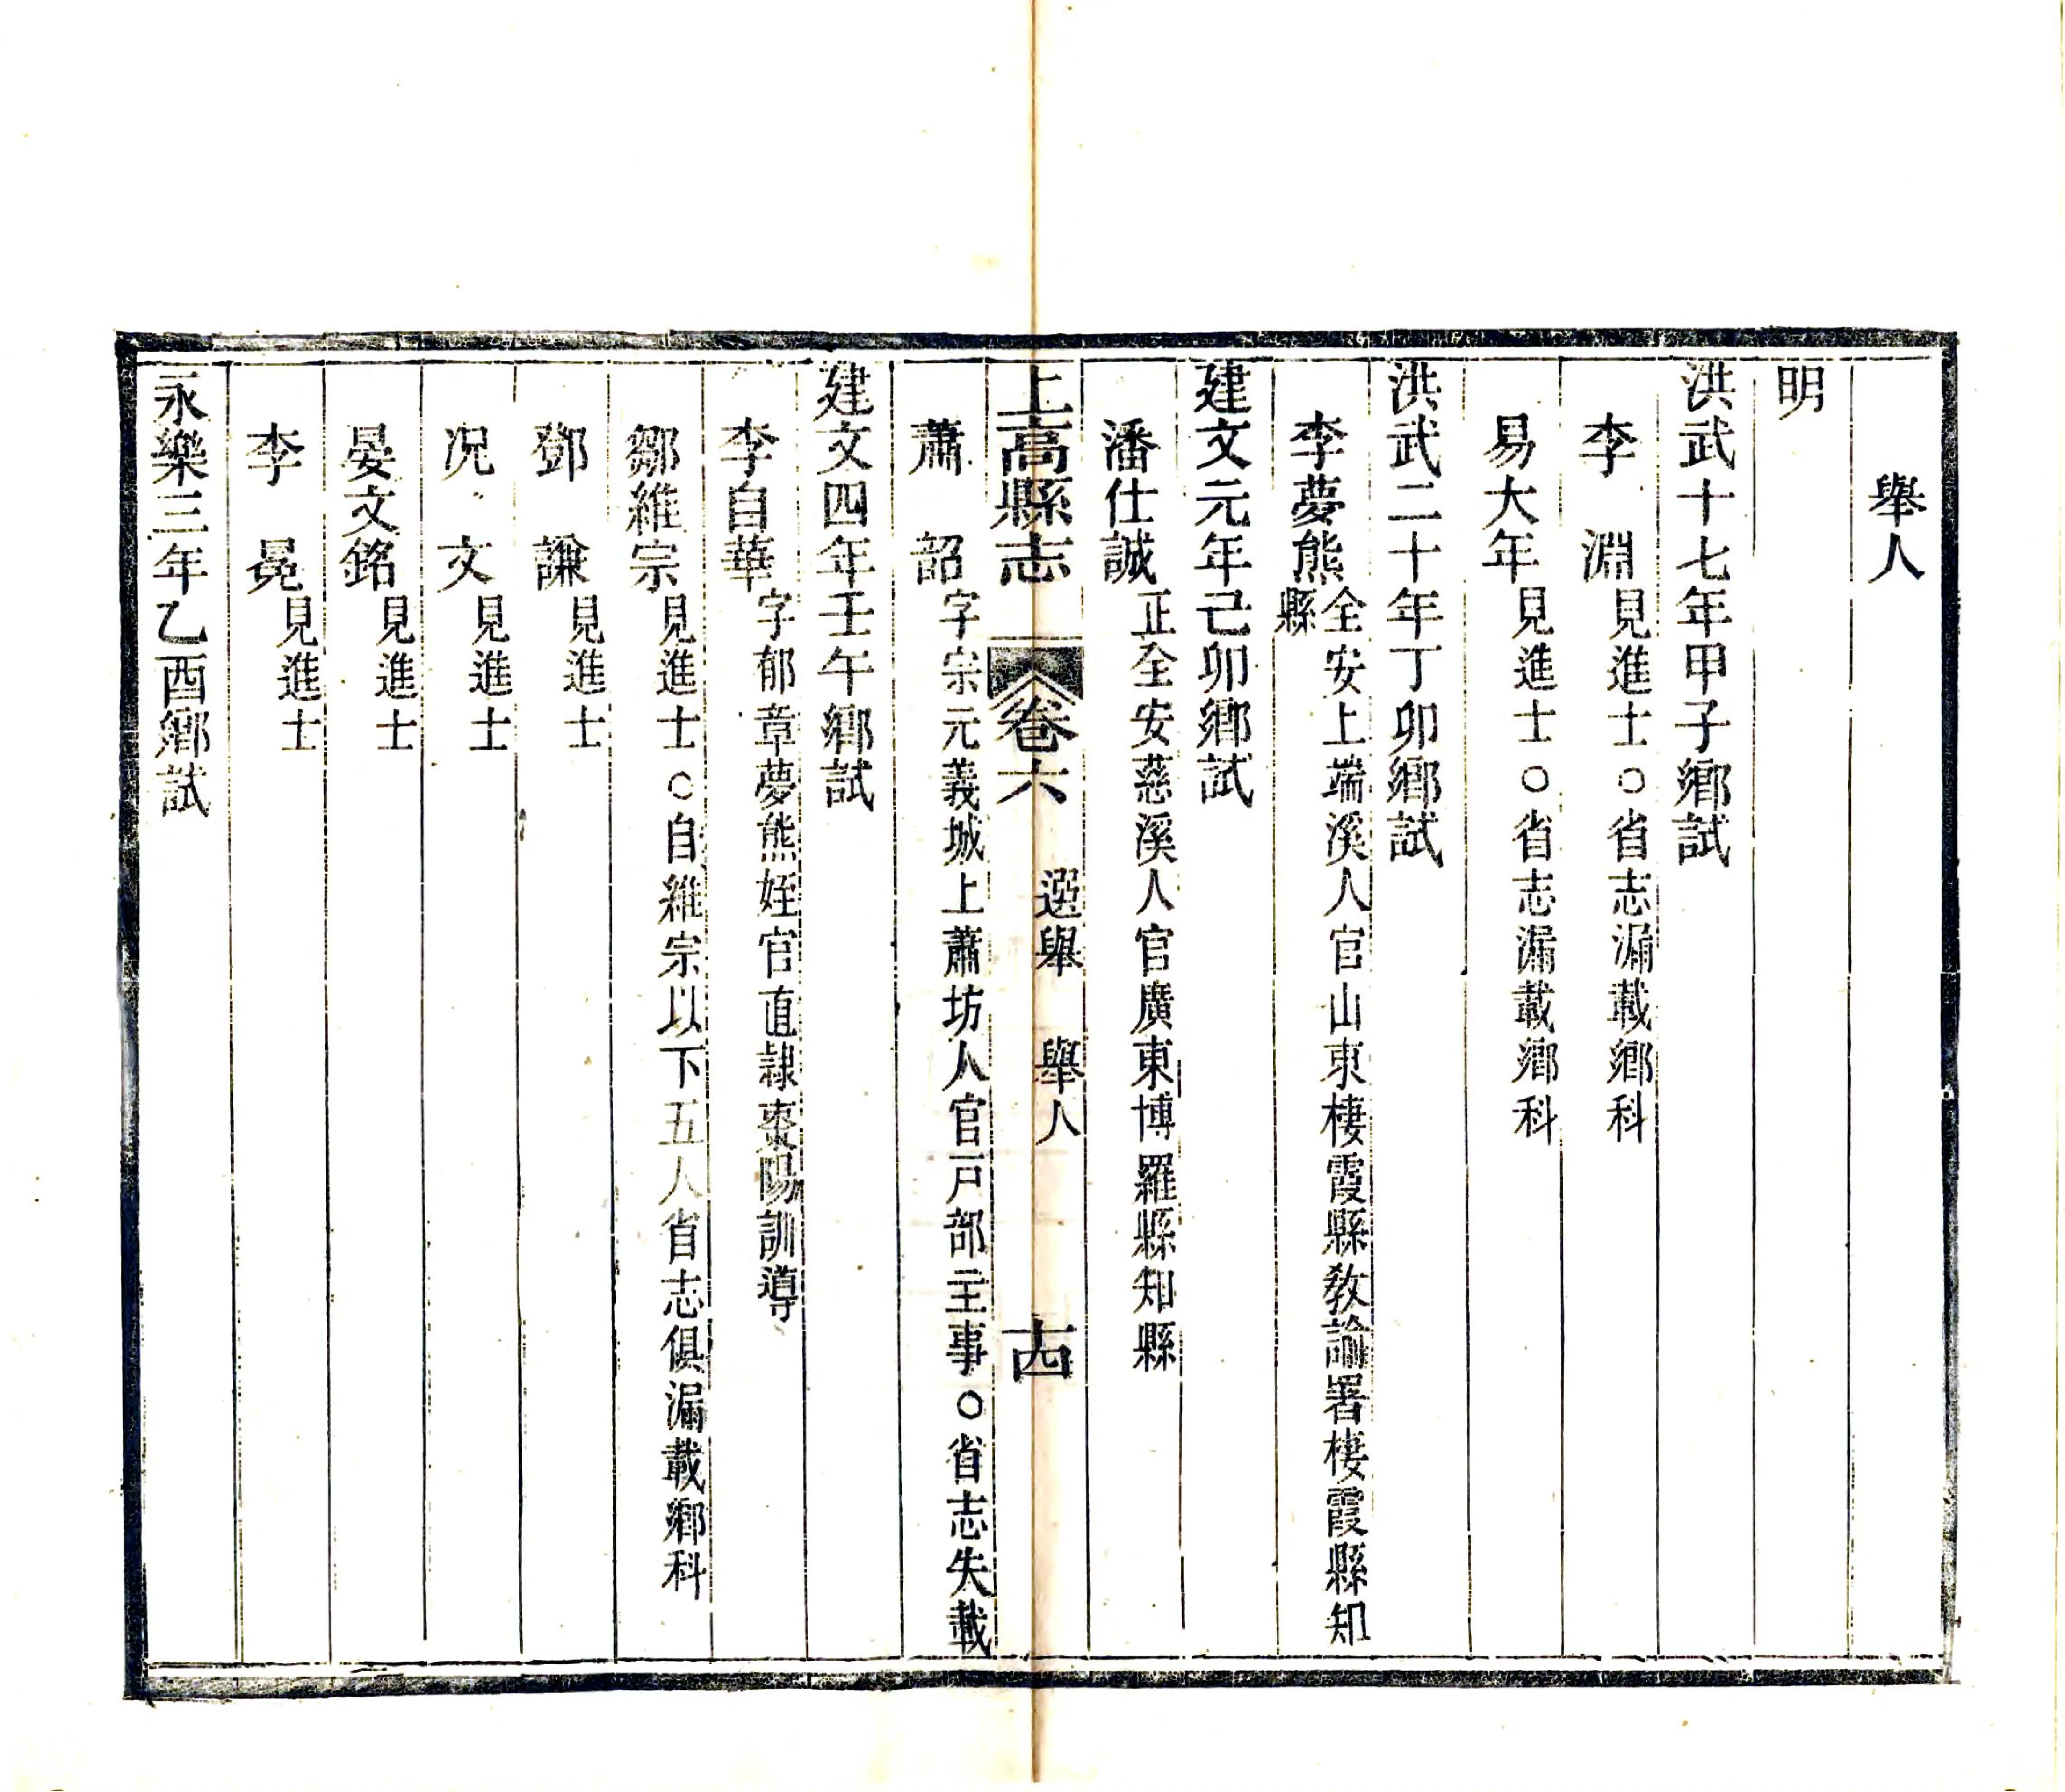 舉人
明
洪武十七年甲子鄉試
李　淵見進士○省志漏載鄉科
易大年見進士○省志漏載鄉科
洪武二十年丁卯鄉試
李夢熊全安上端溪人官山東棲霞縣教諭署棲霞縣知縣
建文元年己卯鄉試
潘仕誠正全安慈溪人官廣東博羅縣知縣
上高縣志　卷六　選舉　舉人　十四
蕭　韶字宗元義城上蕭坊人官戸部主事○省志失載
建文四年壬午鄉試
李自華字郁章夢熊姪官直隷棗陽訓導
鄒維宗見進士○自維宗以下五人省志俱漏載鄉科
鄧　謙見進士
况　文見進士
晏文銘見進士
李　晃見進士
永樂三年乙酉鄉試